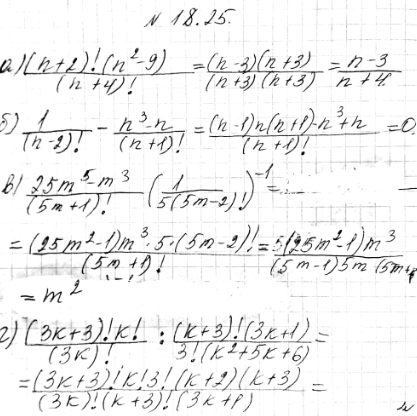 № 18.25.
а) (n+2)!(n²-9) / (n+4)! = (n-3)(n+3) / (n+3)(n+3) = n-3 / n+4.
б) 1 / (n-2)! - n³-n / (n+1)! = (n-1)n(n+1)-n³+n / (n+1)! = 0.
в) 25m⁵-m³ / (5m+1)! (1 / 5(5m-2)!)⁻¹ =
= (25m²-1)m³·5·(5m-2)! / (5m+1)! = 5(25m²-1)m³ / (5m-1)5m(5m+1)
= m²
г) (3k+3)!k! / (3k)! : (k+3)!(3k+1) / 3!(k²+5k+6) =
= (3k+3)!k!3!(k+2)(k+3) / (3k)!(k+3)!(3k+1) =